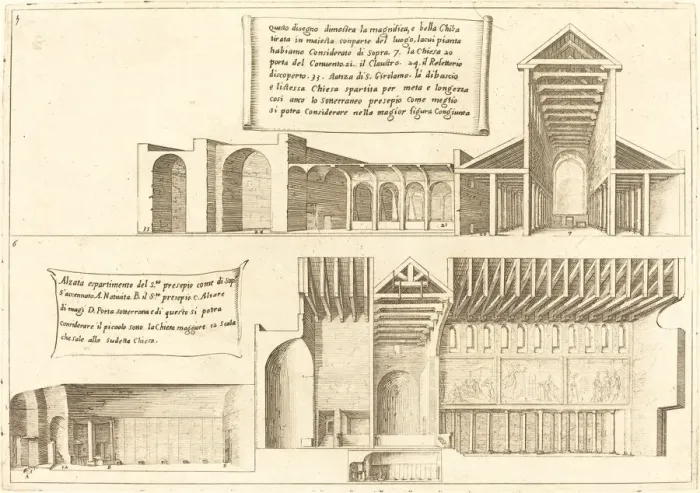 5
Questo disegno dimostra la magnifica, e bella Chiesa
tirata in maiesta con parte del luogo, la cui pianta
habiamo Considerato di Sopra. 7. la Chiesa 20
porta del Conuento. 21. il Claustro. 24. il Refettorio
discoperto. 33. stanza di S. Girolamo. la dibascio
e listessa Chiesa spartita per meta e longezza
cosi anco lo Soterraneo presepio come meglio
si potra Considerare nella magior figura Congiunta
33
24
21
7
6
Alzata e spartimento del S.mo presepio come di Sop.
S'accennato. A. Natiuita. B. il S.mo presepio. C. Altare
di magi D. Porta soterranea e di questo si potra
considerare il piccolo sono la Chiesa maggiore 12 Scala
che sale alla sudetta Chiesa.
A
12
B